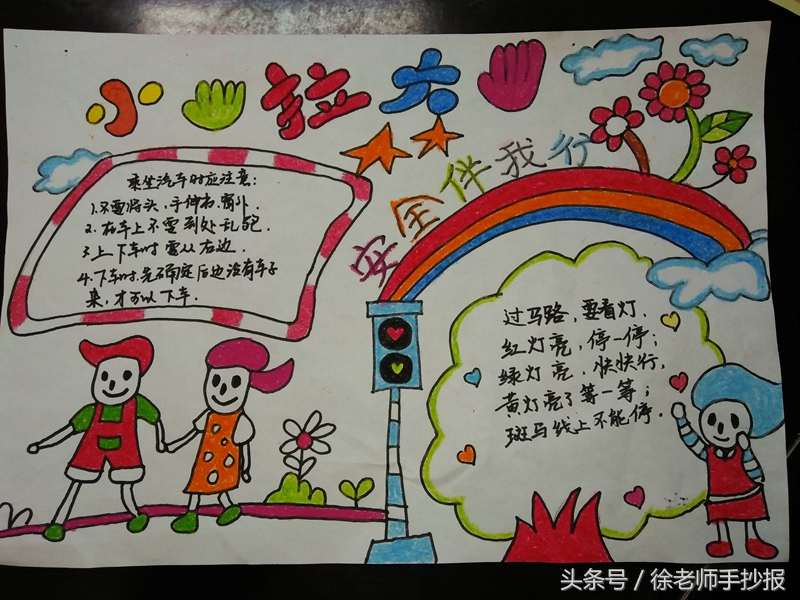 小手拉大手
安全伴我行
乘坐汽车时应注意:
1.不要将头,手伸向窗外.
2.在车上不要到处乱跑.
3.上下车时要从右边.
4.下车时.先确定后边没有车子
来,才可以下车.
过马路,要看灯,
红灯亮,停一停;
绿灯亮,快快行,
黄灯亮了等一等;
斑马线上不能停.
头条号 / 徐老师手抄报